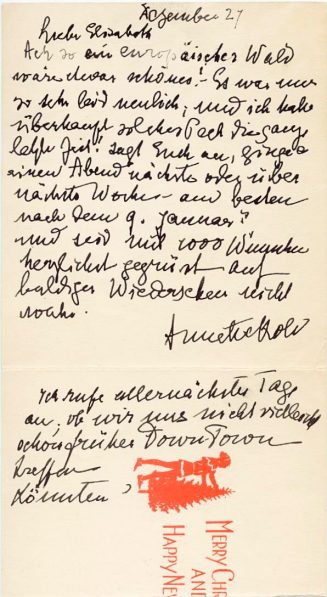 Dezember 27
Liebe Elisabeth
Ach so ein europäischer Wald
wäre etwas schönes! Es war mir
so sehr leid neulich, und ich habe
überhaupt solches Pech die ganze
letzte Zeit! sagt Euch an, ginge
einen Abend nächste oder über
nächste Woche - am besten
nach dem 9. Januar?
und seid mit 1000 Wünschen
herzlichst gegrüsst auf
baldiges Wiedersehen nicht
wahr.
Annette Kolb
Ich rufe allernächster Tage
an, ob wir uns nicht vielleicht
schon früher Down Town
treffen
könnten,
MERRY CHR
AND
HAPPY NEW